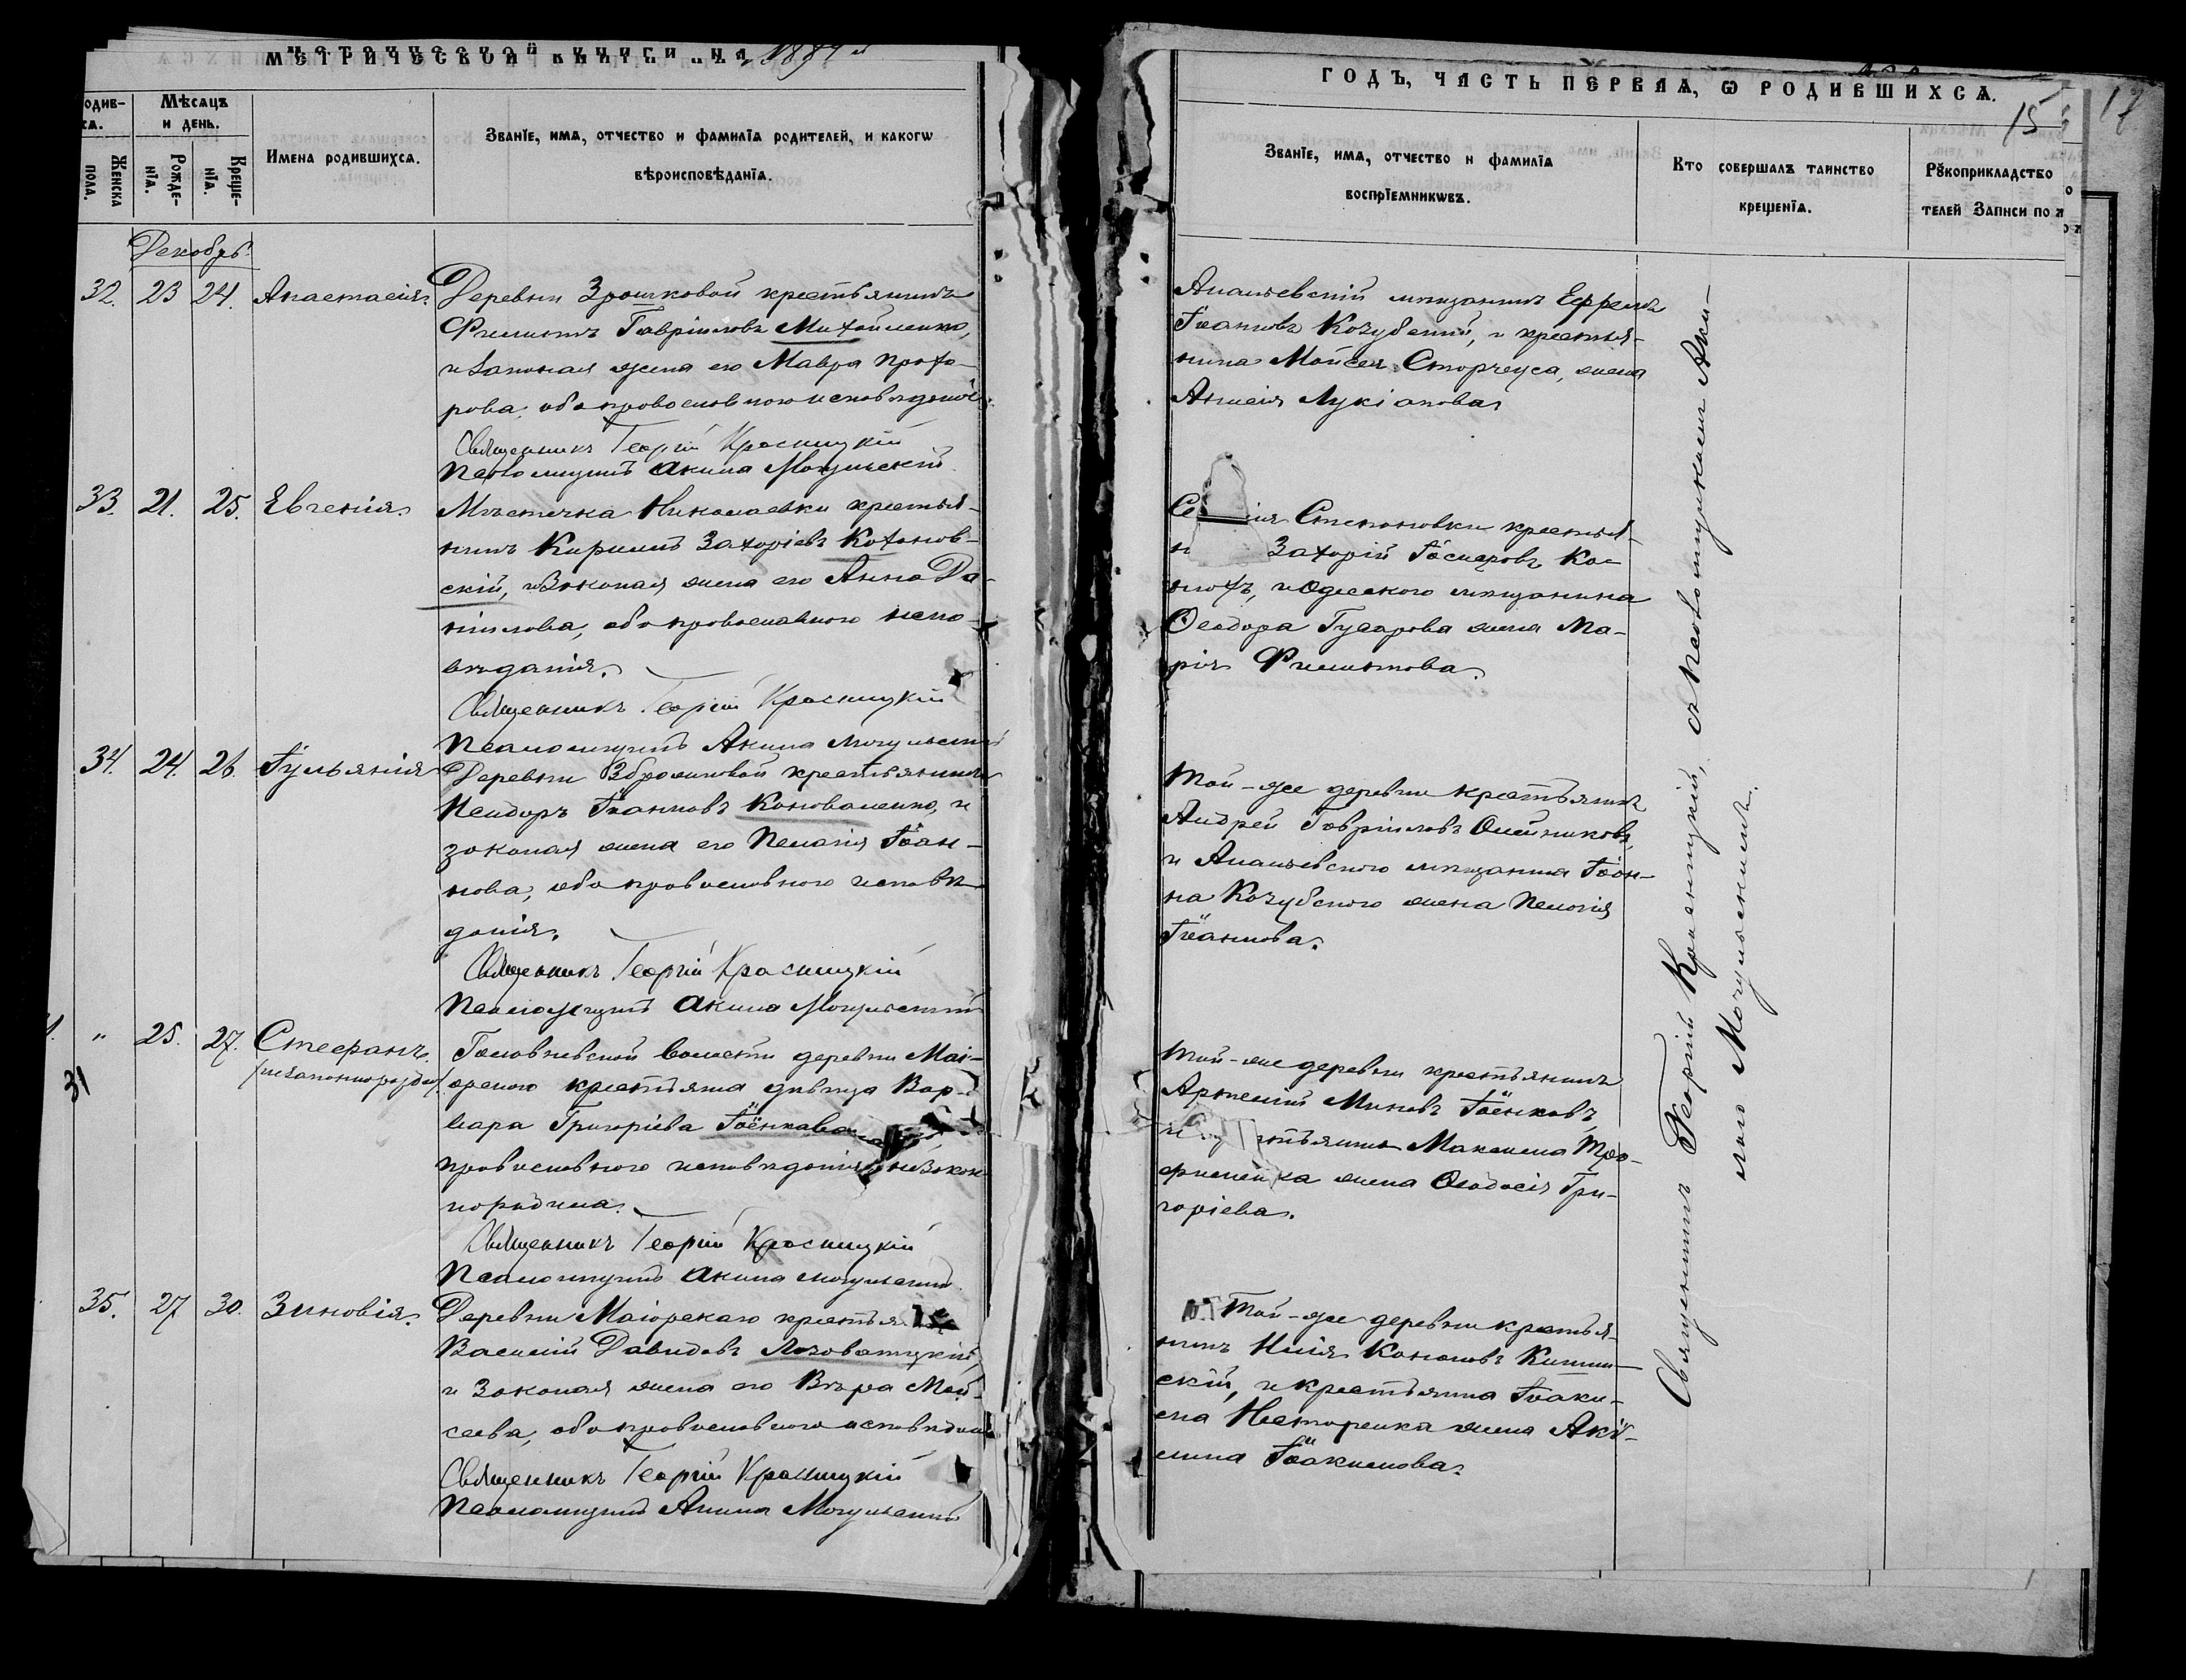 МЕТРИЧЕСКОЙ КНИГИ НА 1889й
ГОДЪ, ЧАСТЬ ПЕРВАЯ, Ѡ РОДИВШИХСЯ.
15
17
одив-
ся.
Женска
пола.
Мѣсяцъ
и день.
Рожде-
нїя.
Креще-
нїя.
Имена родившихся.
Званїе, имя, отчество и фамилїя родителей, и какогѡ
вѣроисповѣданїя.
Званїе, имя, отчество и фамилїя
воспрїемникѡвъ.
Кто совершалъ таинство
крещенїя.
Рꙋкоприкладство
телей Записи по
Декабрь
32. 23 24. Анастасія.
Деревни Зрошковой крестьянинъ
Филиппъ Гавріиловъ Михайленко,
и законая жена его Мавра Прохо-
рова, оба православного исповѣданія.
Священникъ Георгій Красницкій
Псаломщикъ Акила Могульскій
Ананьевскій мѣщанинъ Ефремъ
Іоанновъ Козубскій, и крестья-
нина Мойсея Сторчеуса, жена
Анисія Лукіанова
33. 21. 25. Евгенія.
Мѣстечка Николаевки крестья-
нинъ Кириллъ Захоріевъ Кохонов-
скій, и законая жена его Анна Да-
ніилова, оба православного испо-
вѣданія.
Священникъ Георгій Красницкій
Псаломщикъ Акила Могульскій
Степановки крестья-
Захорій
и Одесского мѣщанина
Ѳеодора Гусарова жена Ма-
рія Филиппова.
34. 24. 26. Іульянія
Деревни Зброшковой крестьянинъ
Исидоръ Іоанновъ Коноваленко, и
законая жена его Пелагія Іоан-
нова, оба православного исповѣ-
данія.
Священникъ Георгій Красницкій
Псаломщикъ Акила Могульскій
Той-же деревни крестьянинъ
Андрей Гавріиловъ Олейниковъ
и Ананьевского мѣщанина Іоан-
на Козубского жена Пелогія
Іоаннова.
" 25. 27. Стефанъ.
/незаконнорожден/
31
Головлевской волости деревни Маі-
орского крестьянка дѣвица Вар-
вара Григоріева Іоенкова
православного исповѣданія, незакон-
норожденъ.
Священникъ Георгій Красницкій
Псаломщикъ Акила Могульскій
Той-же деревни крестьянинъ
Артемій Миновъ Іоенковъ,
Максима Тро-
фименка жена Ѳеодосія Гри-
горіева.
35. 27 30. Зиновія.
Деревни Маіорскаго крестья
Василій Давидовъ Лозоватцкій,
и законая жена его Вѣра Мой-
сеева, оба православного исповѣданія
Священникъ Георгій Красницкій
Псаломщикъ Акила Могульскій
Той-же деревни крестья-
нинъ Илія Кононовъ
скій, и крестьянина Іоаки-
ма Несторенка жена Аки-
лина Іоакимова.
Священникъ Георгій Красницкій, съ псаломщикомъ Аки-
лою Могульскимъ.